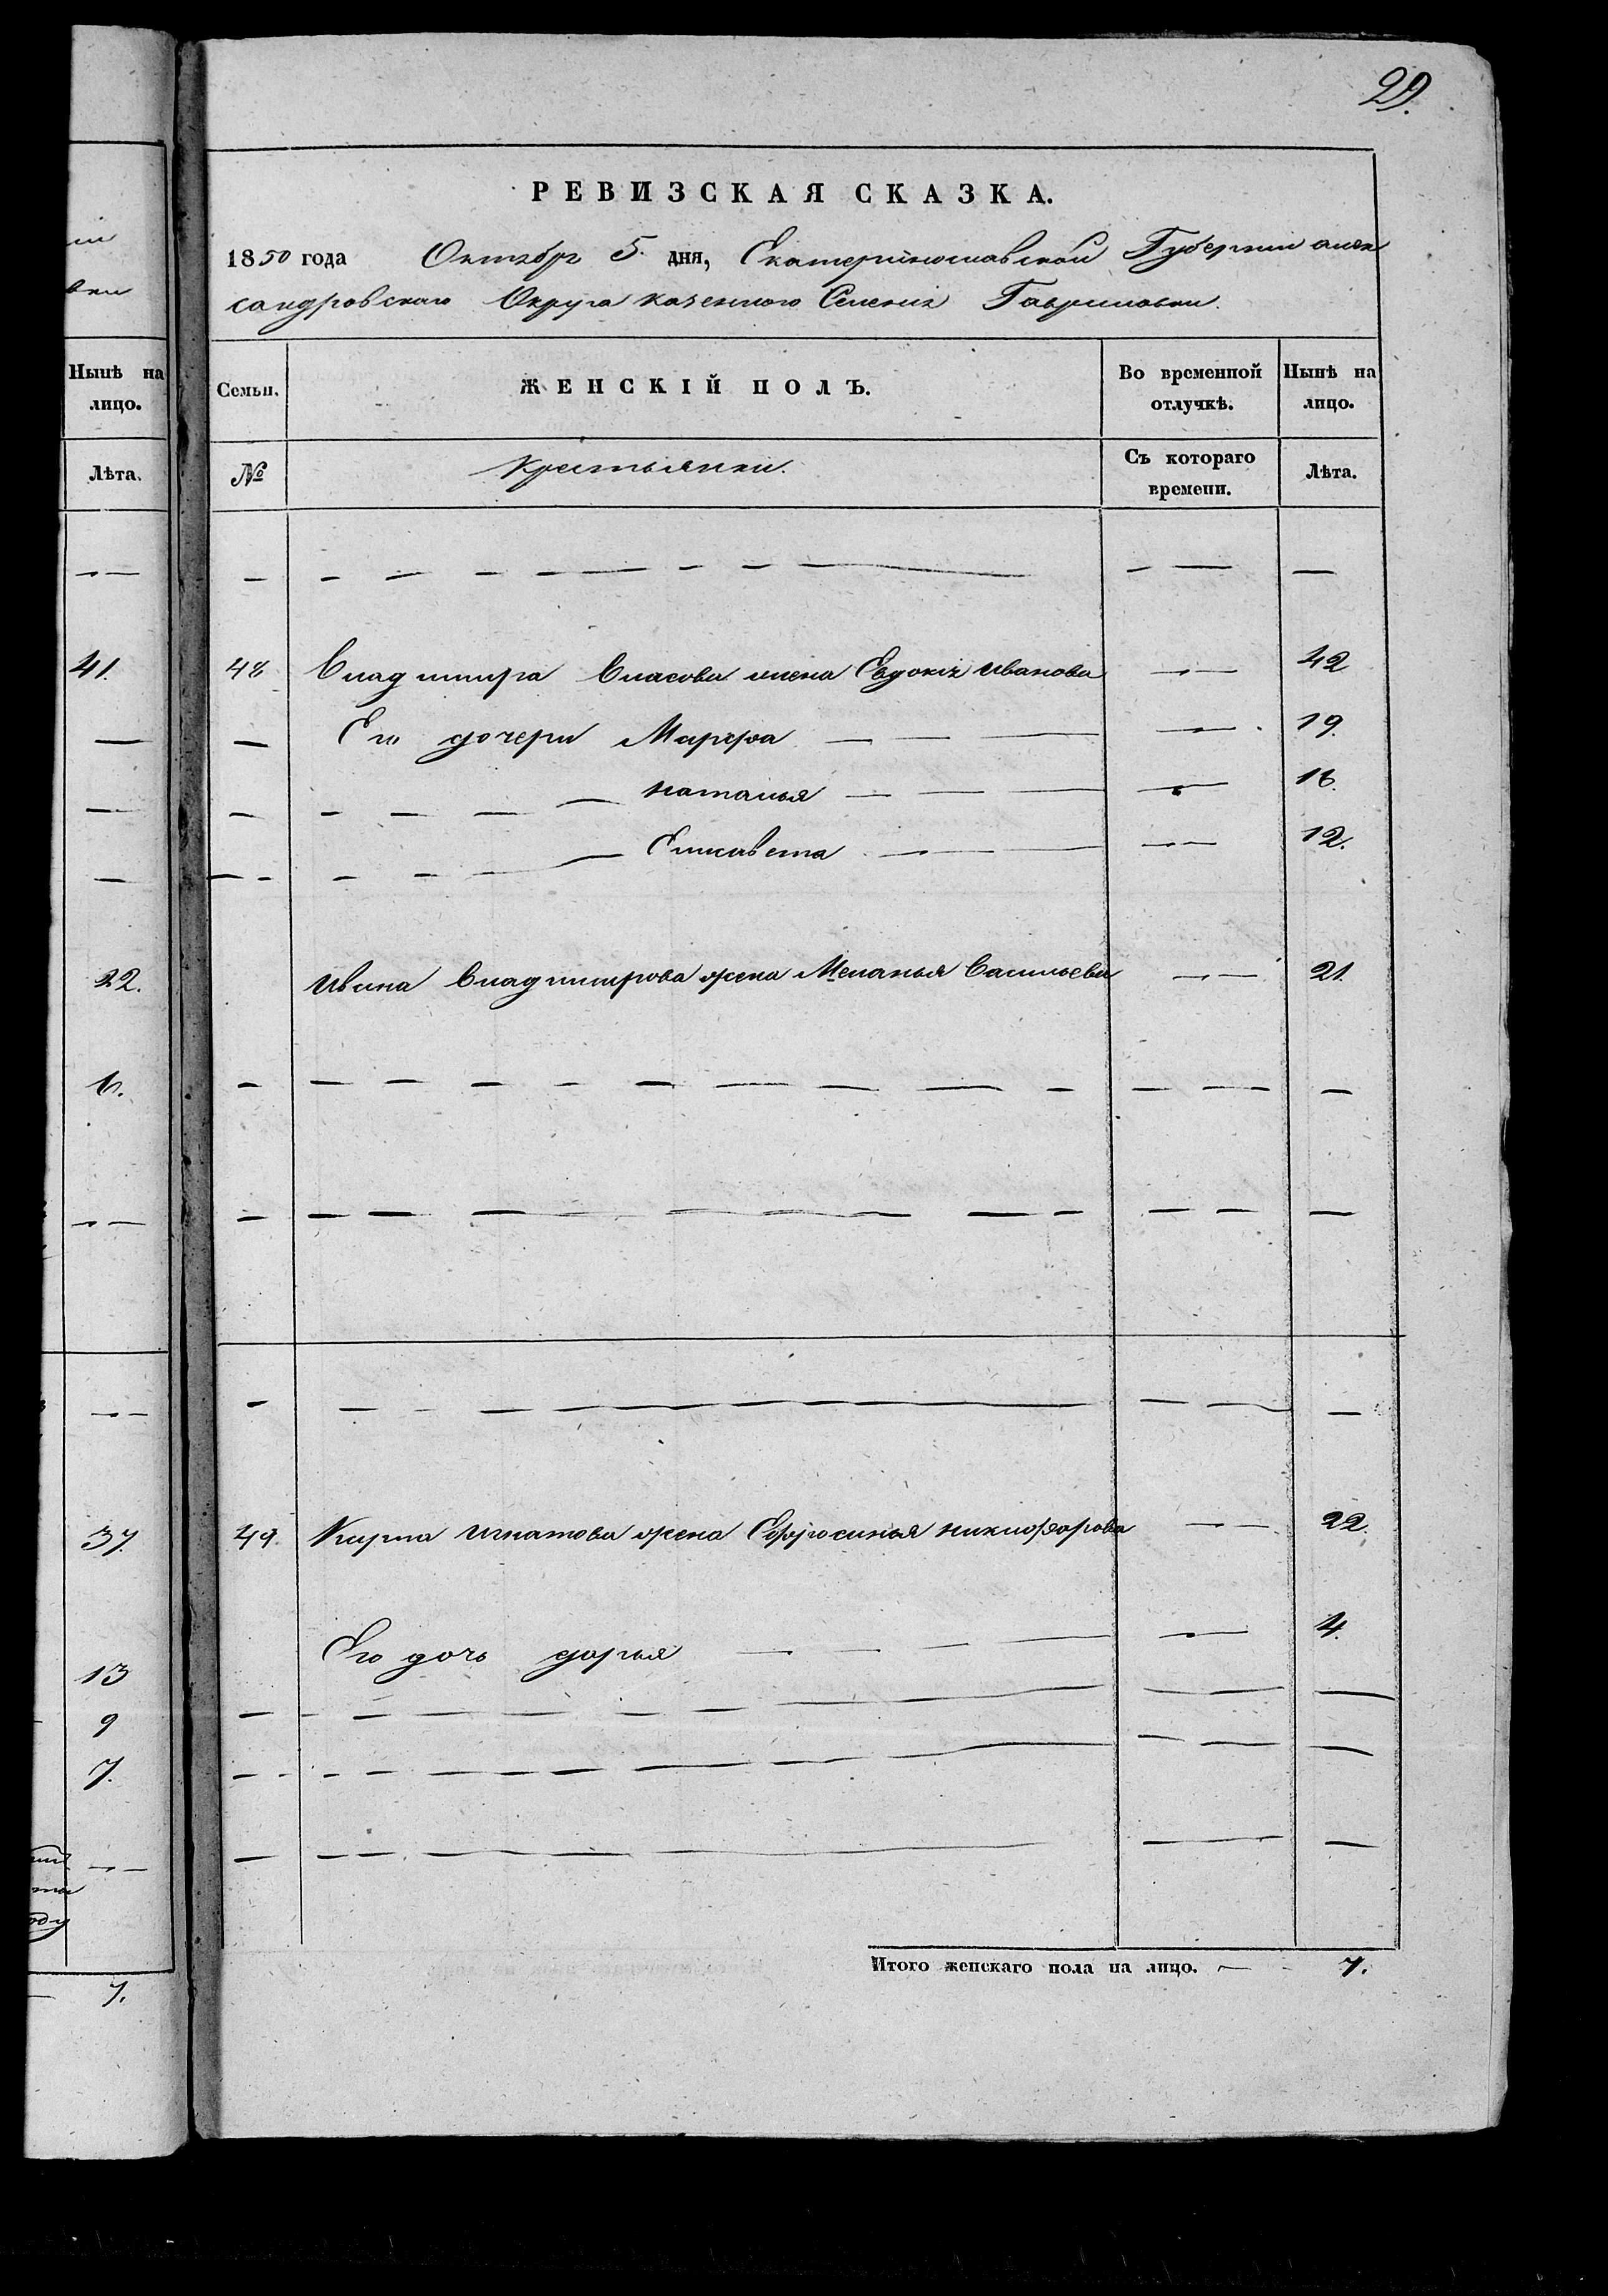 29.
РЕВИЗСКАЯ СКАЗКА.
1850 года Октября 5. дня, Екатеринославской Губернии алек
сандровскаго Округа казенного Селенія Гавриловки.
Нынѣ на лицо.
Лѣта.
41.
22.
6.
37.
13
9
7.
7.
Семьи. ЖЕНСКІЙ ПОЛЪ. Во временной отлучкѣ. Нынѣ на лицо.
№ Крестьянки. Съ котораго времени. Лѣта.
48 Владимира Власова жена Евдокія Иванова 42
Его дочери Марфа 19.
Наталья 16.
Елисавета 12.
Владимирова жена Меланья Васильева 21.
49. Игнатова жена Ефросинья Никифорова 22.
Его дочь дарья 4.
Итого женскаго пола на лицо. 7.